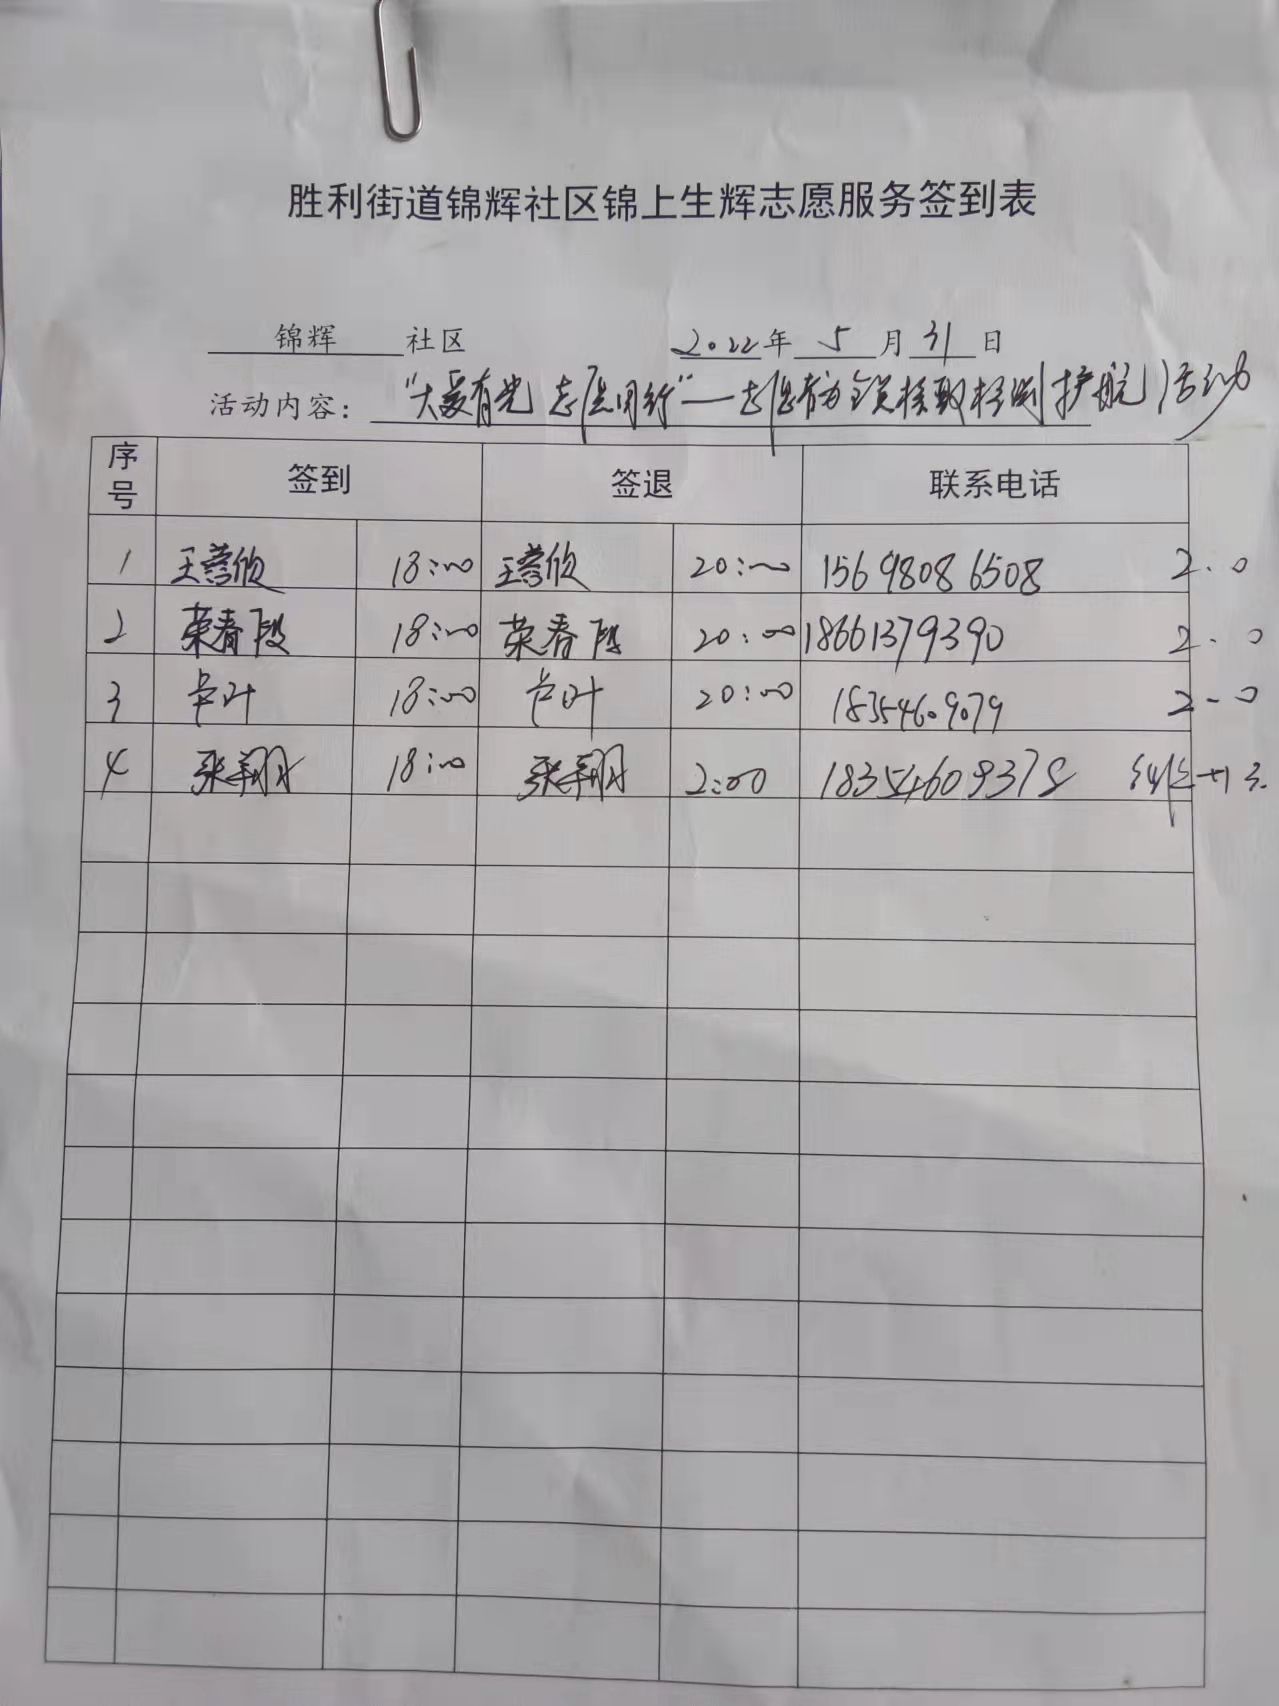 胜利街道锦辉社区锦上生辉志愿服务签到表
锦辉 社区 2022年 5 月 31 日
活动内容: "大爱有光 志愿同行"—志愿者为全员核酸检测护航活动
序号 签到 签退 联系电话
1 18:00 20:00 15698086508 2.0
2 荣春段 18:00 荣春段 20:00 18661379390 2.0
3 卡叶 18:00 卡叶 20:00 18354609079 2.0
4 张翔 18:00 张翔 2:00 18354609378